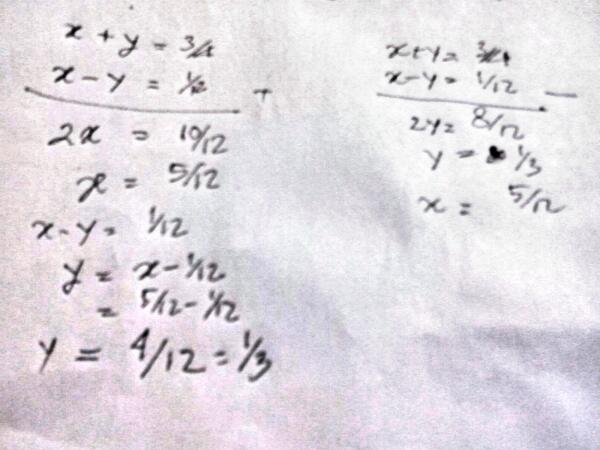 x + y = 3/4
x - y = 1/12
+
2x = 10/12
x = 5/12
x - y = 1/12
y = x - 1/12
= 5/12 - 1/12
y = 4/12 = 1/3
x + y = 3/4
x - y = 1/12
-
2y = 8/12
y = 1/3
x = 5/12